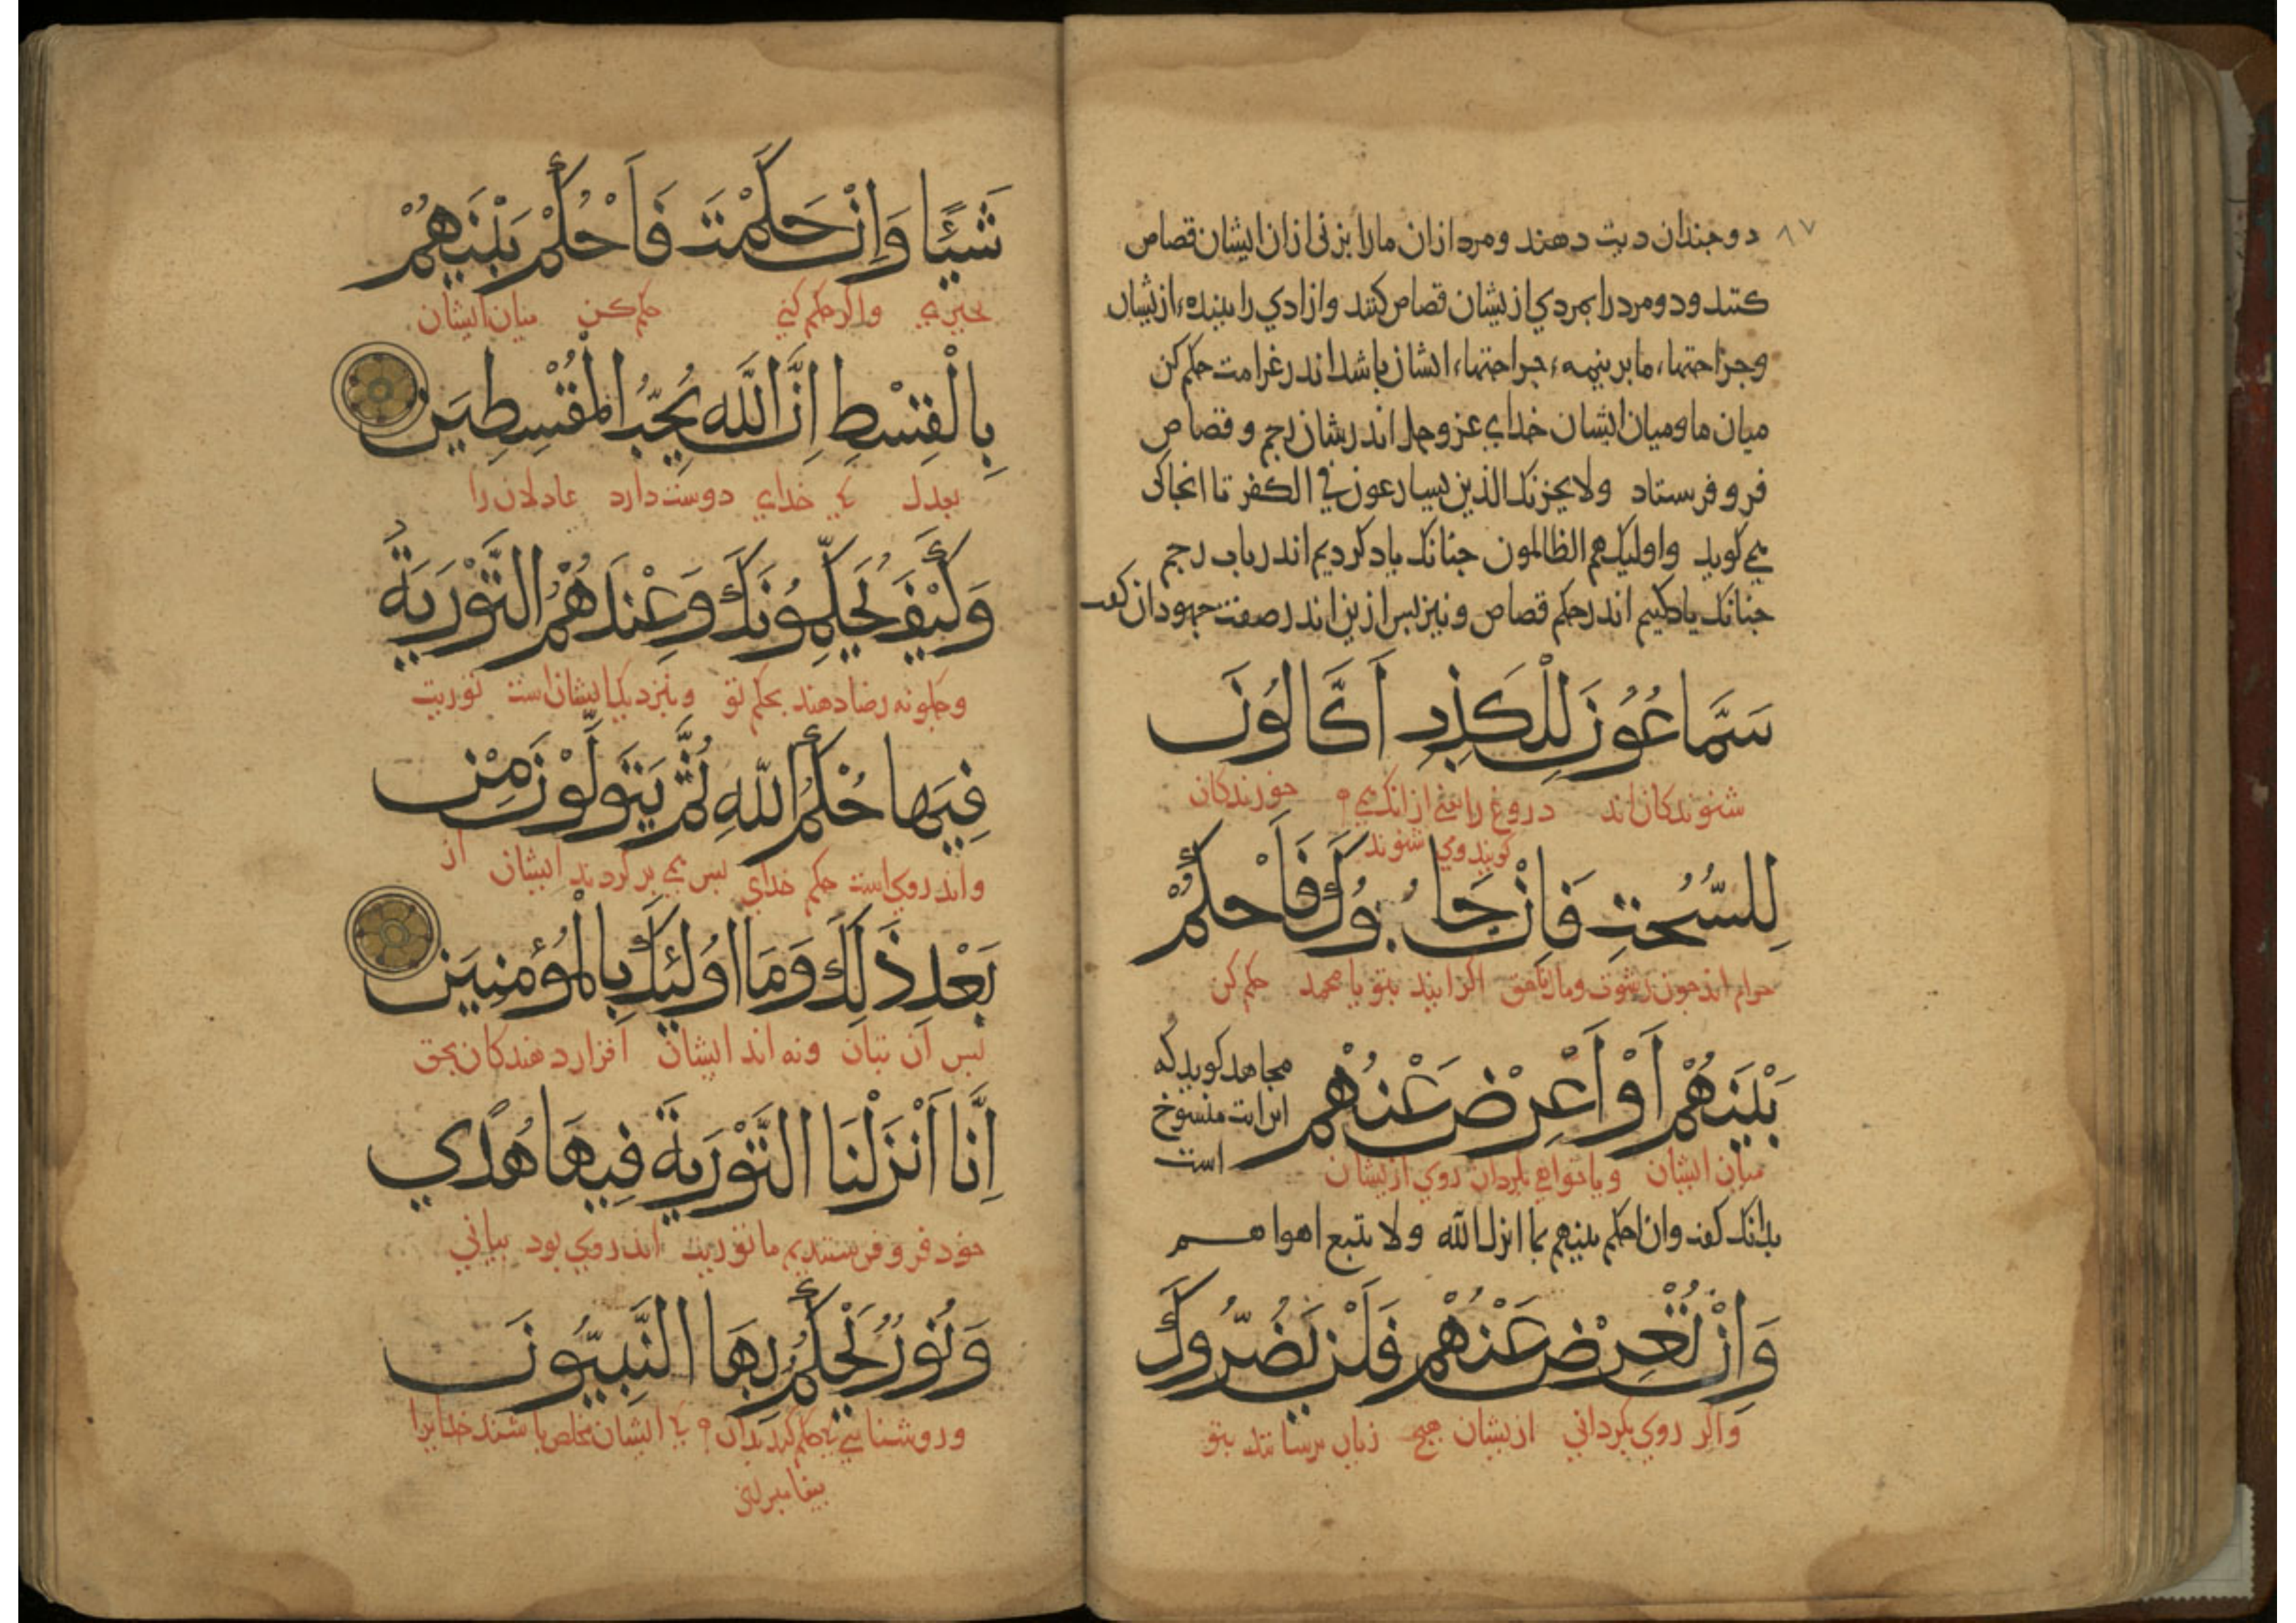 ٨٧
دو جندان دیت دهند و مرد از ان ما را بزنی از ان ایشان قصاص
کنند و دو مرد را بمردي ازیشان قصاص کنند و ازادي را ببنده ازیشان
و جراحتهاء ما بر نیمهء جراحتهاء ایشان باشد اندر غرامت حکم کن
میان ما و میان ایشان خداي عز و جل اندر شان رجم و قصاص
فرو فرستاد ولا یحزنک الذین یسارعون في الکفر تا انجا کی
می کوید واولیک هم الظالمون جنانک یاد کردیم اندر باب رجم
جنانک یاد کنیم اندر حکم قصاص و نیز بس ازین اندر صفت جهودان کفت
سَمَّاعُونَ لِلْكَذِبِ أَكَّالُونَ
شنوندکان اند دروغ را یعنی از انک می خورندکان
کویند و می شنوند
لِلسُّحْتِ فَاِنْ جَاءُوكَ فَاحْكُمْ
حرام اند جون رشوت و مال ناحق اکر ایند بتو یا محمد حکم کن
بَيْنَهُمْ أَوْ أَعْرِضْ عَنْهُمْ
مجاهد کوید که
این ایت منسوخ
است
میان ایشان و یا خواهی بکردان روي ازیشان
بدانک کفت وان احکم بینهم بما انزل الله ولا تتبع اهواهم
وَاِنْ تُعْرِضْ عَنْهُمْ فَلَنْ يَضُرُّوكَ
واکر روي بکرداني ازیشان هیج زیان نرسانند بتو
شَيْئًا وَاِنْ حَكَمْتَ فَاحْكُمْ بَيْنَهُمْ
جیزي واکر حکم کني حکم کن میان ایشان
بِالْقِسْطِ اِنَّ اللَّهَ يُحِبُّ الْمُقْسِطِينَ
بعدل کي خداي دوست دارد عادلان را
وَكَيْفَ يُحَكِّمُونَكَ وَعِنْدَهُمُ التَّوْرَيةُ
و جکونه رضا دهند بحکم تو و بنزدیک ایشان است توریت
فِيهَا حُكْمُ اللَّهِ ثُمَّ يَتَوَلَّوْنَ مِنْ
واندر وي است حکم خداي بس می بر کردند ایشان از
بَعْدِ ذَلِكَ وَمَا اُولَئِكَ بِالْمُؤْمِنِينَ
بس آن بیان و نه اند ایشان اقرار دهندکان بحق
اِنَّا أَنْزَلْنَا التَّوْرَيةَ فِيهَا هُدًي
خود فرو فرستدیم ما توریت اندر وي بود بیاني
وَنُورٌ يَحْكُمُ بِهَا النَّبِيُّونَ
و روشنایي کي حکم کردند بدان کي ایشان مخلص باشند خدایرا
بیغامبراني